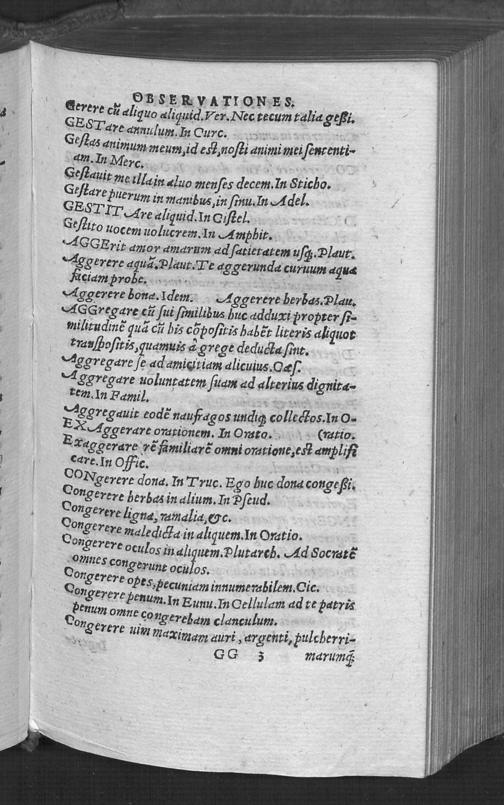 OBSERVATIONES.
Gerere cū aliquo aliquid. Ver. Nec tecum talia geßi.
GESTare annulum. In Curc.
Gestas animum meum, id est, nosti animi mei sententi-
am. In Merc.
Gestauit me illa in aluo menses decem. In Sticho.
Gestare puerum in manibus, in sinu. In Adel.
GESTITAre aliquid. In Cistel.
Gestito uocem uolucrem. In Amphit.
AGGErit amor amarum ad satietatem usq;. Plaut.
Aggerere aquā. Plaut. Te aggerunda curuum aqua
faciam probe.
Aggerere bona. Idem. Aggerere herbas. Plau.
AGGregare cū sui similibus huc adduxi propter si-
militudinē quā cū his cōpositis habēt literis aliquot
transpositis, quamuis à grege deducta sint.
Aggregare se ad amicitiam alicuius. Cæs.
Aggregare uoluntatem suam ad alterius dignita-
tem. In Famil.
Aggregauit eodē naufragos undiq; collectos. In O-
EXAggerare orationem. In Orato. (ratio.
Exaggerare rē familiarē omni oratione, est amplifi
care. In Offic.
CONgerere dona. In Truc. Ego huc dona congeßi.
Congerere herbas in alium. In Pseud.
Congerere ligna, ramalia, &c.
Congerere maledicta in aliquem. In Oratio.
Congerere oculos in aliquem. Plutarch. Ad Socratē
omnes congerunt oculos.
Congerere opes, pecuniam innumerabilem. Cic.
Congerere penum. In Eunu. In Cellulam ad te patris
penum omne congerebam clanculum.
Congerere uim maximam auri, argenti, pulcherri-
GG 3 marumq;